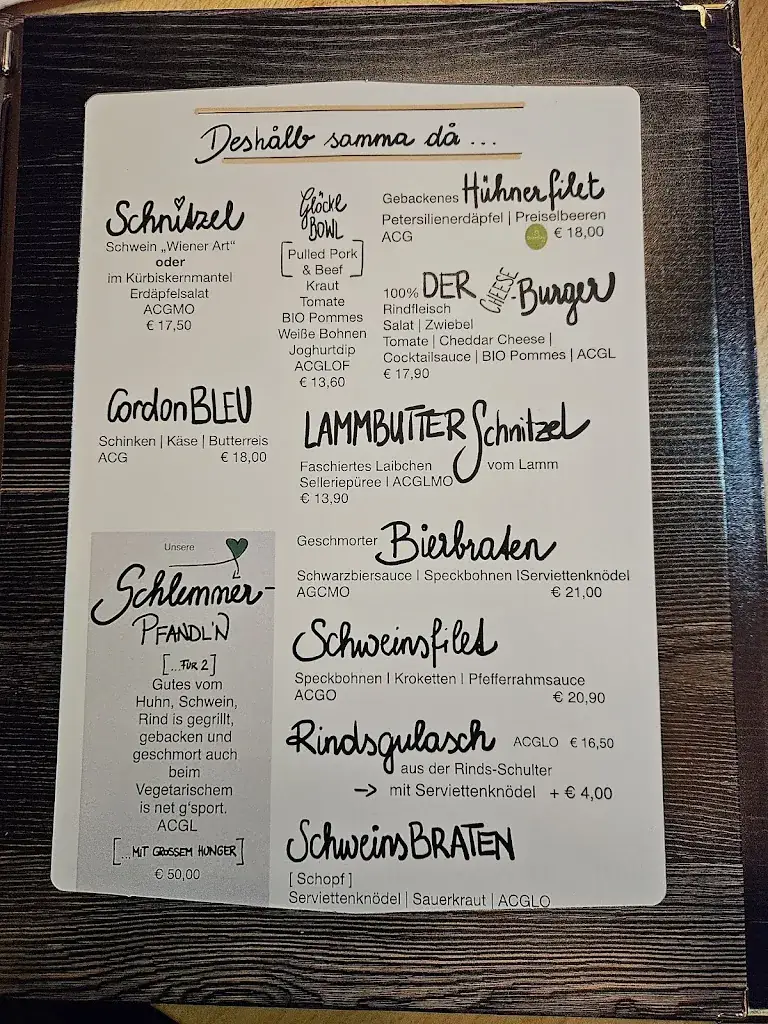 Deshålb samma då ...
Schnitzel
Schwein „Wiener Art“
oder
im Kürbiskernmantel
Erdäpfelsalat
ACGMO
€ 17,50
Glöcke
BOWL
[Pulled Pork
& Beef]
Kraut
Tomate
BIO Pommes
Weiße Bohnen
Joghurtdip
ACGLOF
€ 13,60
Gebackenes Hühnerfilet
Petersilienerdäpfel | Preiselbeeren
ACG
€ 18,00
100% DER CHEESE-Burger
Rindfleisch
Salat | Zwiebel
Tomate | Cheddar Cheese |
Cocktailsauce | BIO Pommes | ACGL
€ 17,90
Cordon BLEU
Schinken | Käse | Butterreis
ACG € 18,00
LAMMBUTTER Schnitzel
Faschiertes Laibchen vom Lamm
Selleriepüree I ACGLMO
€ 13,90
Geschmorter Bierbraten
Schwarzbiersauce I Speckbohnen IServiettenknödel
AGCMO € 21,00
Schweinsfilet
Speckbohnen I Kroketten I Pfefferrahmsauce
ACGO € 20,90
Rindsgulasch ACGLO € 16,50
aus der Rinds-Schulter
→ mit Serviettenknödel + € 4,00
SchweinsBRATEN
[ Schopf ]
Serviettenknödel | Sauerkraut | ACGLO
Unsere
Schlemmer-
PFANDL'N
[...FÜR 2]
Gutes vom
Huhn, Schwein,
Rind is gegrillt,
gebacken und
geschmort auch
beim
Vegetarischem
is net g'sport.
ACGL
[...MIT GROSSEM HUNGER]
€ 50,00